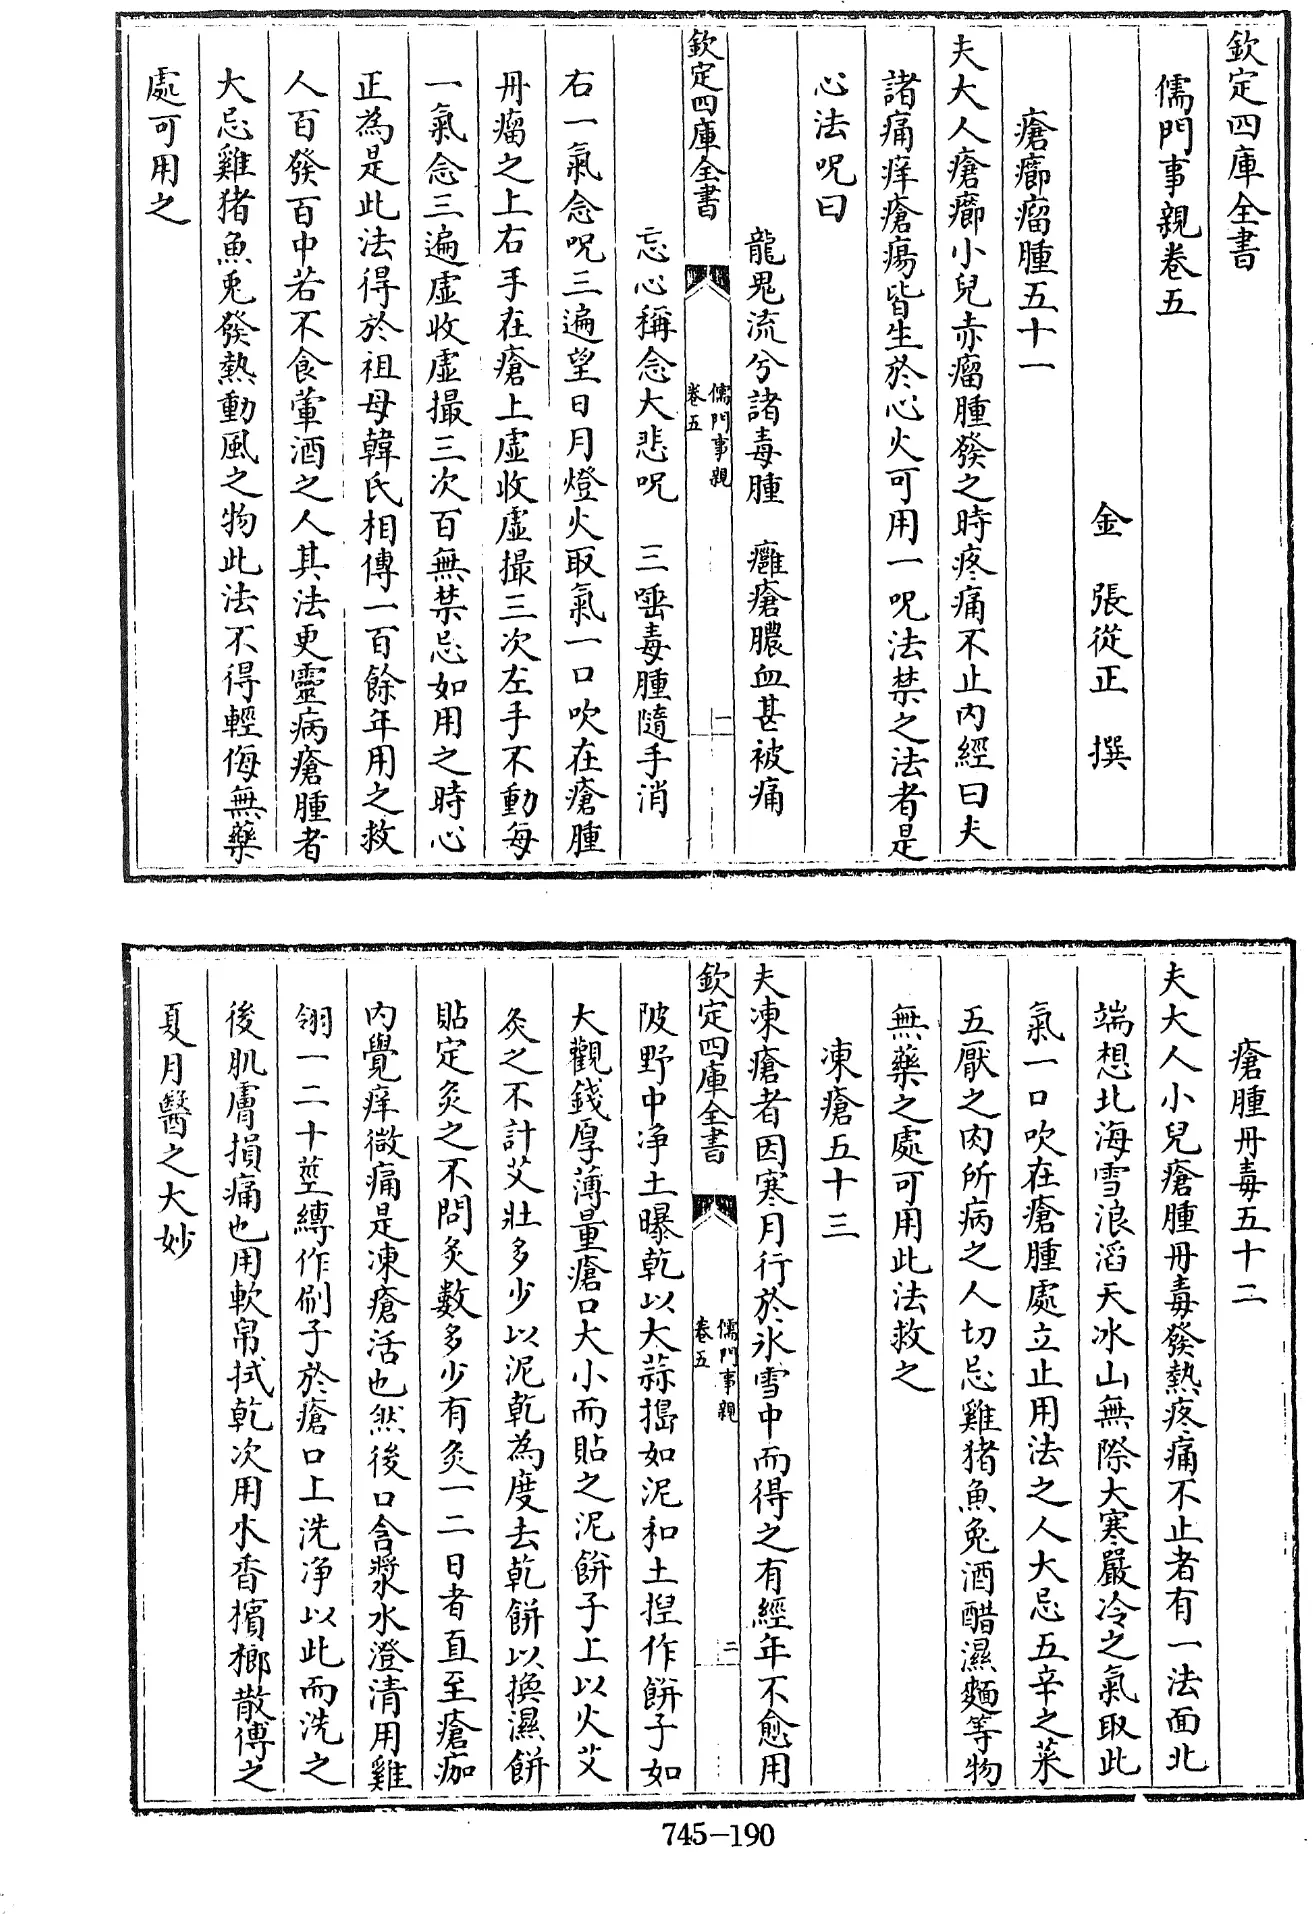 欽定四庫全書
儒門事親卷五
金 張從正 撰
瘡癤瘤腫五十一
夫大人瘡癤小兒赤瘤腫發之時疼痛不止内經曰夫
諸痛痒瘡瘍皆生於心火可用一呪法禁之法者是
心法呪曰
龍鬼流兮諸毒腫 癰瘡膿血甚被痛
欽定四庫全書
儒門事親
卷五
一
忘心稱念大悲呪 三唾毒腫隨手消
右一氣念呪三遍望日月燈火取氣一口吹在瘡腫
丹瘤之上右手在瘡上虛收虛撮三次左手不動每
一氣念三遍虛收虛撮三次百無禁忌如用之時心
正為是此法得於祖母韓氏相傳一百餘年用之救
人百發百中若不食葷酒之人其法更靈病瘡腫者
大忌雞猪魚兎發熱動風之物此法不得輕侮無藥
處可用之
瘡腫丹毒五十二
夫大人小兒瘡腫丹毒發熱疼痛不止者有一法面北
端想北海雪浪滔天冰山無際大寒嚴冷之氣取此
氣一口吹在瘡腫處立止用法之人大忌五辛之菜
五厭之肉所病之人切忌雞猪魚兔酒醋濕麵等物
無藥之處可用此法救之
凍瘡五十三
夫凍瘡者因寒月行於氷雪中而得之有經年不愈用
欽定四庫全書
儒門事親
卷五
二
陂野中净土曝乾以大蒜搗如泥和土揑作餅子如
大觀錢厚薄量瘡口大小而貼之泥餅子上以火艾
灸之不計艾壯多少以泥乾為度去乾餅以換濕餅
貼定灸之不問灸數多少有灸一二日者直至瘡痂
内覺痒微痛是凍瘡活也然後口含漿水澄清用雞
翎一二十莖縛作刷子於瘡口上洗净以此而洗之
後肌膚損痛也用軟帛拭乾次用木香檳榔散傅之
夏月醫之大妙
745-190